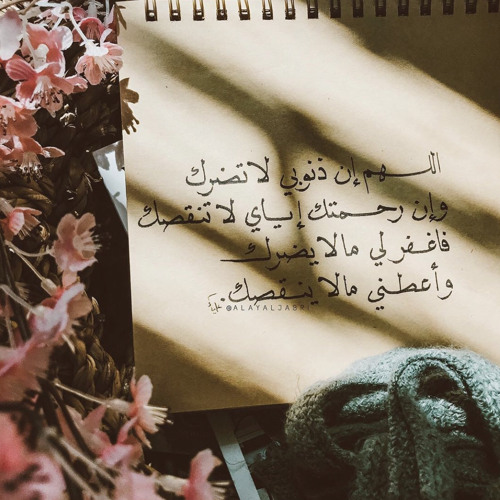 اللهم إن ذنوبي لا تضرك
وإن رحمتك إياي لا تنقصك
فاغفر لي مالا يضرك
وأعطني مالا ينقصك.
@ALAYALJABRI